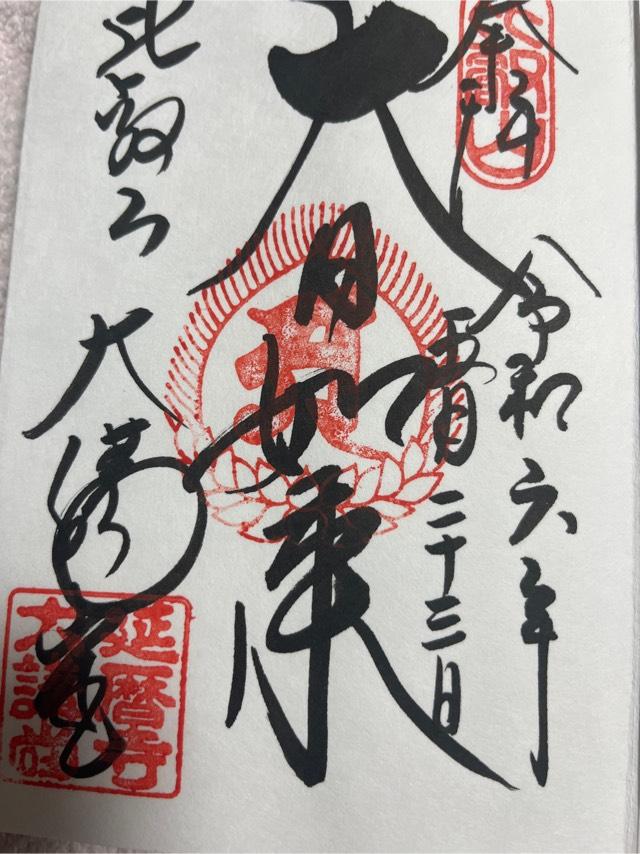 奉拝
比叡山
令和六年
五月二十三日
大日如来
比叡山
大講堂
延暦寺
大講堂